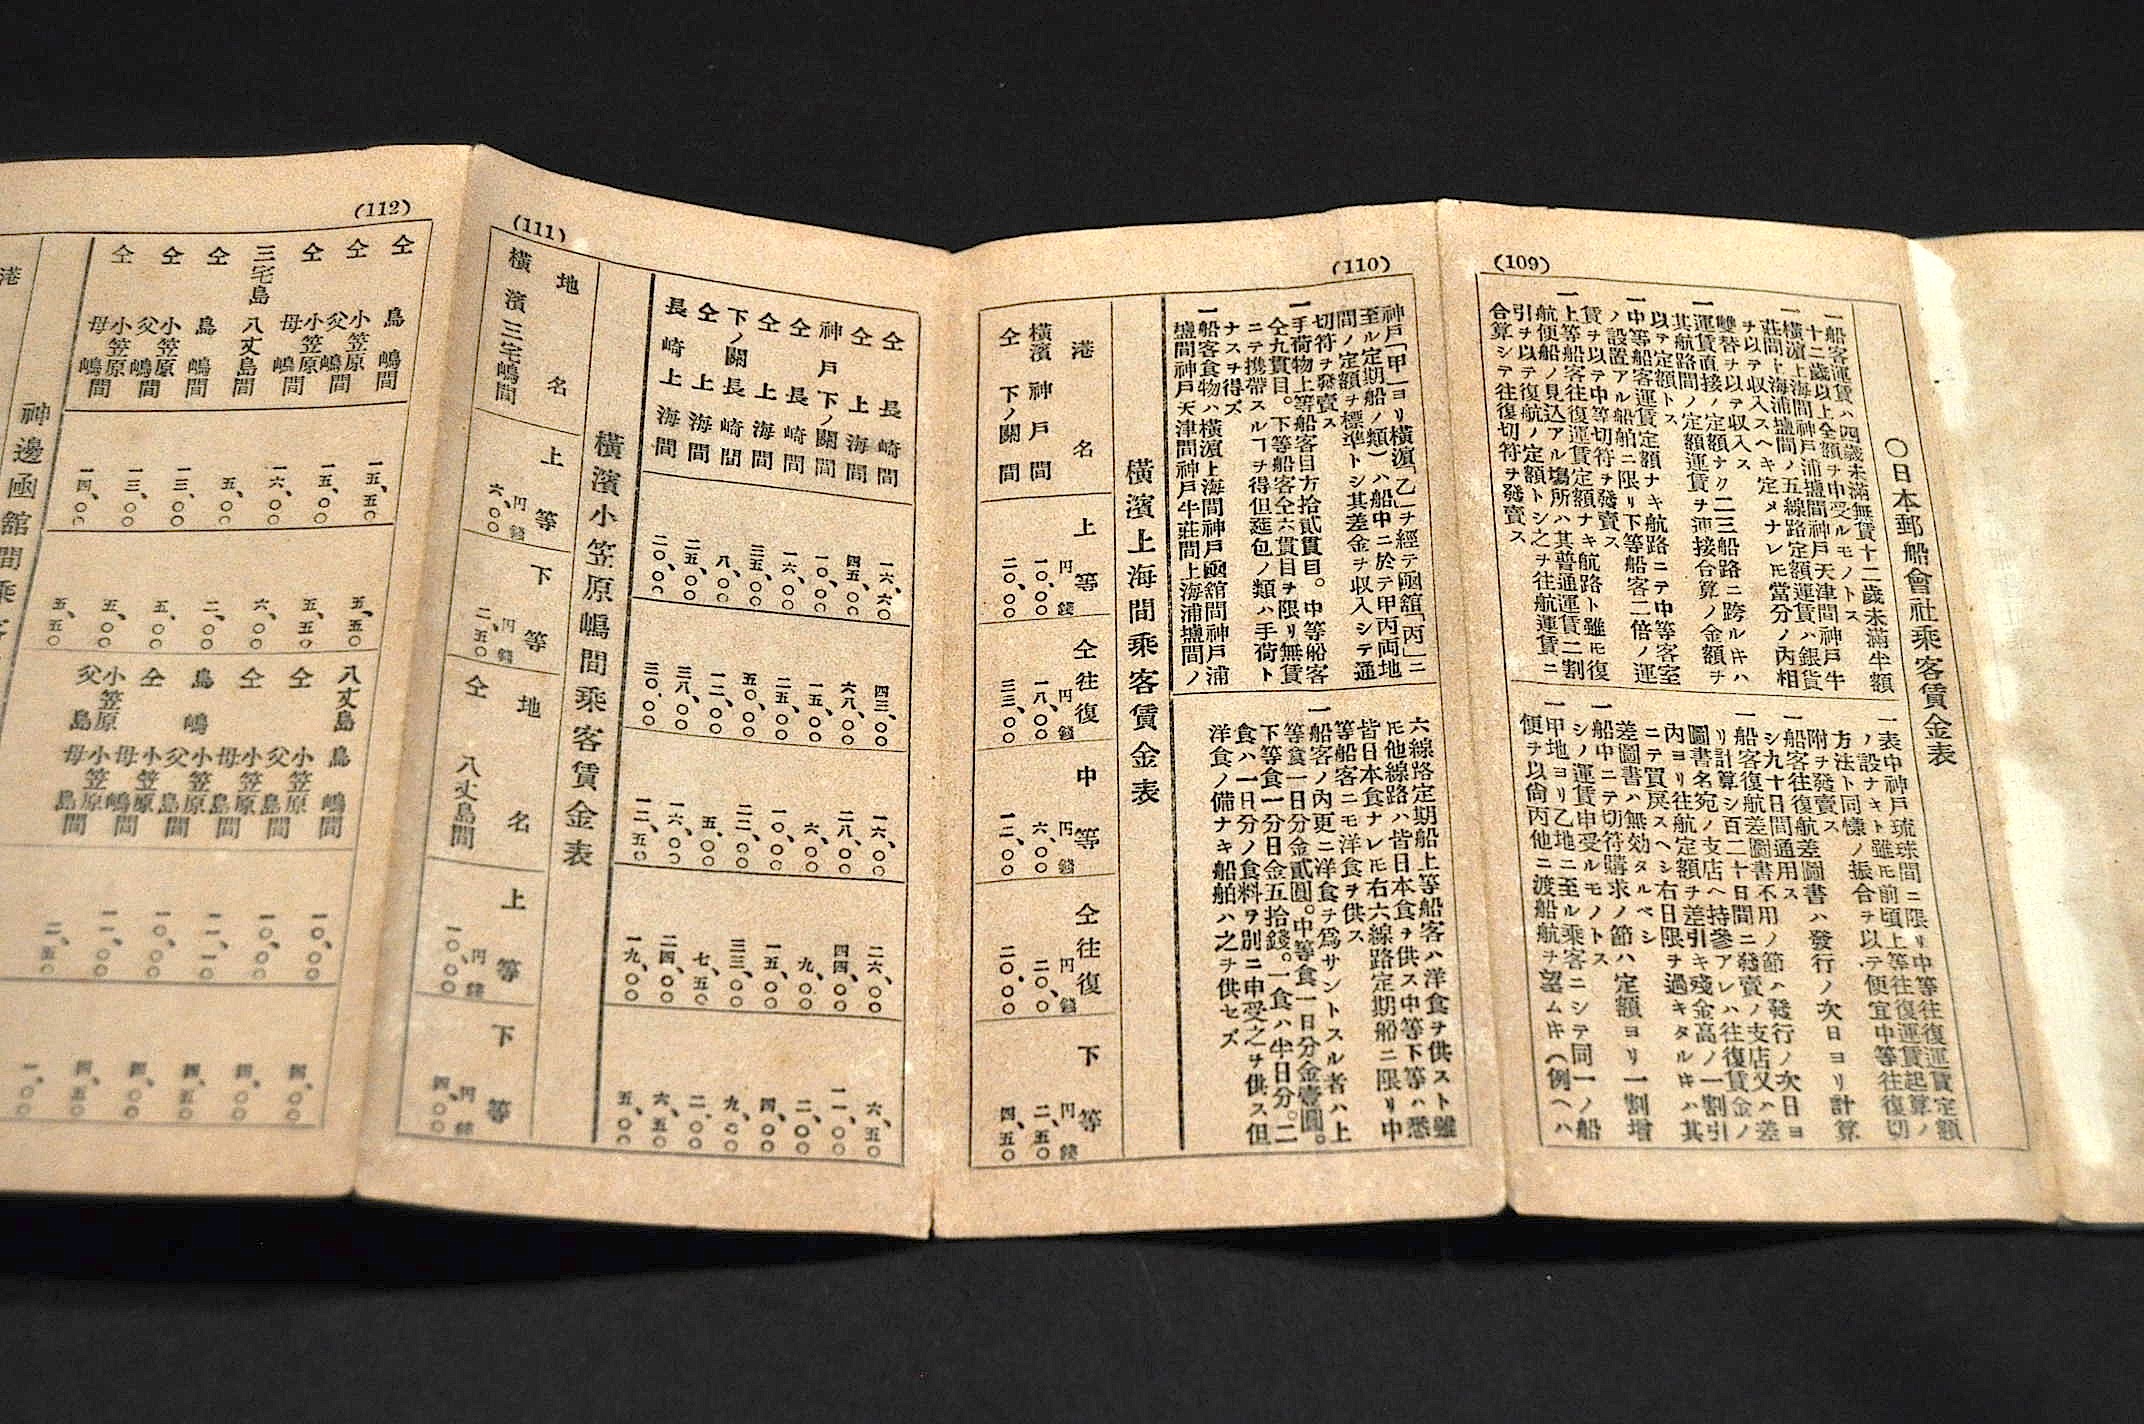 (109)
○日本郵船會社乘客賃金表
一船客運賃ハ四歲未滿無賃十二歲未滿半額
十二歲以上全額ヲ申受ルモノトス
一橫濱上海間神戶浦鹽間神戶天津間神戶牛
莊間上海浦鹽間ノ五線路定額運賃ハ銀貨
ヲ以テ収入スヘキ定メナレ𪜈當分ノ內相
雙替ヲ以テ収入ス
一運賃直接ノ定額ナク二三船路ニ跨ルキハ
其航路間ノ定額運賃ヲ連接合算ノ金額ヲ
以テ定額トス
一中等船客運賃定額ナキ航路ニテ中等客室
ノ設置アル船舶ニ限リ下等船客二倍ノ運
賃ヲ以テ中等切符ヲ發賣ス
一上等船客往復運賃定額ナキ航路ト雖𪜈復
航便船ノ見込アル塲所ハ其普通運賃二割
引ヲ以テ復航ノ定額トシ之ヲ往航運賃ニ
合算シテ往復切符ヲ發賣ス
一表中神戶琉球間ニ限リ中等往復運賃定額
ノ設ナキト雖𪜈前項上等往復運賃起算ノ
方法ト同樣ノ振合ヲ以テ便宜中等往復切
附ヲ發賣ス
一船客往復航差圖書ハ發行ノ次日ヨリ計算
シ九十日間通用ス
一船客復航差圖書不用ノ節ハ發行ノ次日ヨ
リ計算シ百二十日間ニ發賣ノ支店又ハ差
圖書名宛ノ支店ヘ持參アレハ往復賃金ノ
內ヨリ往航定額ヲ差引キ殘金高ノ一割引
ニテ買戾スヘシ右日限ヲ過キタルキハ其
差圖書ハ無効タルベシ
一船中ニテ切符購求ノ節ハ定額ヨリ一割增
シノ運賃申受ルモノトス
一甲地ヨリ乙地ニ至ル乘客ニシテ同一ノ船
便ヲ以尙丙他ニ渡船航ヲ望ムキ(例ヘハ
(110)
神戶「甲」ヨリ橫濱「乙」ヲ經テ函館「丙」ニ
至ル定期船ノ類)ハ船中ニ於テ甲丙両地
間ノ定額ヲ標準トシ其差金ヲ収入シテ通
切符ヲ發賣ス
一手荷物上等船客目方拾貳貫目。中等船客
仝九貫目。下等船客仝六貫目ヲ限リ無賃
ニテ携帶スルヿヲ得但莚包ノ類ハ手荷ト
ナスヲ得ズ
一船客食物ハ橫濱上海間神戶函館間神戶浦
鹽間神戶天津間神戶牛莊間上海浦鹽間ノ
六線路定期船上等船客ハ洋食ヲ供スト雖
𪜈他線路ハ皆日本食ヲ供ス中等下等ハ悉
皆日本食ナレ𪜈右六線路定期船ニ限リ中
等船客ニモ洋食ヲ供ス
一船客ノ內更ニ洋食ヲ爲サントスル者ハ上
等食一日分金貳圓。中等食一日分金壹圓。
下等食一分日金五拾錢。一食ハ半日分。二
食ハ一日分ノ食料ヲ別ニ申受之ヲ供ス但
洋食ノ備ナキ船舶ハ之ヲ供セズ
橫濱上海間乘客賃金表
港名 上等 仝往復 中等 仝往復 下等
橫濱神戶間 円一〇、〇〇錢 円一八、〇〇錢 円六、〇〇錢 円一〇、〇〇錢 円二、五〇錢
仝下ノ關間 二〇、〇〇 三三、〇〇 一二、〇〇 二〇、〇〇 四、五〇
(111)
仝長崎間 二六、〇〇 四三、〇〇 一六、〇〇 二六、〇〇 六、五〇
仝上海間 四五、〇〇 六八、〇〇 二八、〇〇 四四、〇〇 一一、〇〇
神戶下ノ關間 一〇、〇〇 一五、〇〇 六、〇〇 九、〇〇 二、〇〇
仝長崎間 一六、〇〇 二五、〇〇 一〇、〇〇 一五、〇〇 四、〇〇
仝上海間 三五、〇〇 五〇、〇〇 二二、〇〇 三三、〇〇 九、〇〇
下ノ關長崎間 八、〇〇 一二、〇〇 五、〇〇 七、五〇 二、〇〇
仝上海間 二五、〇〇 三八、〇〇 一六、〇〇 二四、〇〇 六、五〇
長崎上海間 二〇、〇〇 三〇、〇〇 一二、五〇 一九、〇〇 五、〇〇
橫濱小笠原嶋間乘客賃金表
地名 上等 下等 地名 上等 下等
橫濱三宅嶋間 円六、〇〇錢 円二、五〇錢 仝八丈島間 円一〇、〇〇錢 円四、〇〇錢
(112)
仝鳥嶋間 一五、五〇 五、五〇 八丈島鳥嶋間 一〇、〇〇 四、〇〇
仝小笠原父嶋間 一五、〇〇 五、五〇 仝小笠原父島間 一〇、〇〇 四、〇〇
仝小笠原母嶋間 一六、〇〇 六、〇〇 仝小笠原母島間 一一、一〇 四、五〇
三宅島八丈島間 五、〇〇 二、〇〇 鳥嶋小笠原父島間 一〇、〇〇 四、〇〇
仝鳥嶋間 一三、〇〇 五、〇〇 仝小笠原母嶋間 一一、〇〇 四、五〇
仝小笠原父嶋間 一三、〇〇 五、〇〇 小笠原父島小笠原母島間 二、五〇 一、〇〇
仝小笠原母嶋間 一四、〇〇 五、五〇
神邊函館間乘客
港